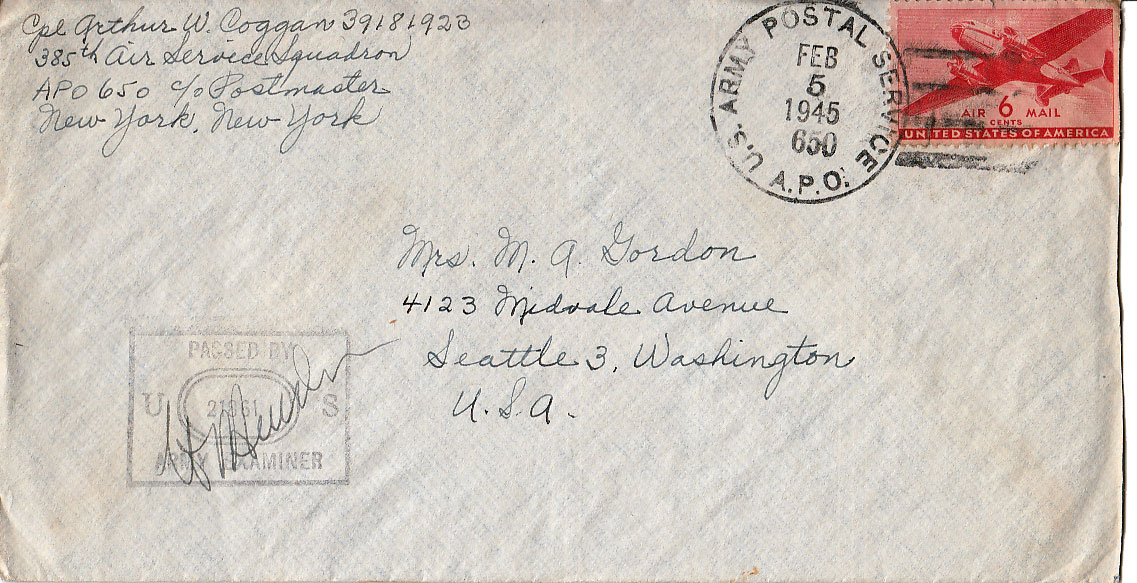 Cpl Arthur W. Coggan 39181923
385th Air Service Squadron
APO 650 c/o Postmaster
New York, New York
U.S. ARMY POSTAL SERVICE
FEB
5
1945
650
A.P.O.
AIR 6 MAIL
CENTS
UNITED STATES OF AMERICA
Mrs. M. A. Gordon
4123 Midvale Avenue
Seattle 3, Washington
U.S.A.
PASSED BY
U S
ARMY EXAMINER